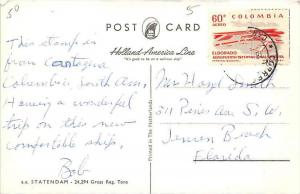 50
5
POST CARD
Holland-America Line
"It's good to be on a well-run ship"
60c
AEREO
COLOMBIA
ELDORADO
AEROPUERTO INTERNACIONAL
This stamp is
from Cartagena
Columbia, South Am.
Having a wonderful
trip on this new
comfortable ship.
Bob
Mrs Hazel Smith
311 Rives Ave S.W.
Jensen Beach
Florida
Printed in The Netherlands
s.s. STATENDAM - 24,294 Gross Reg. Tons